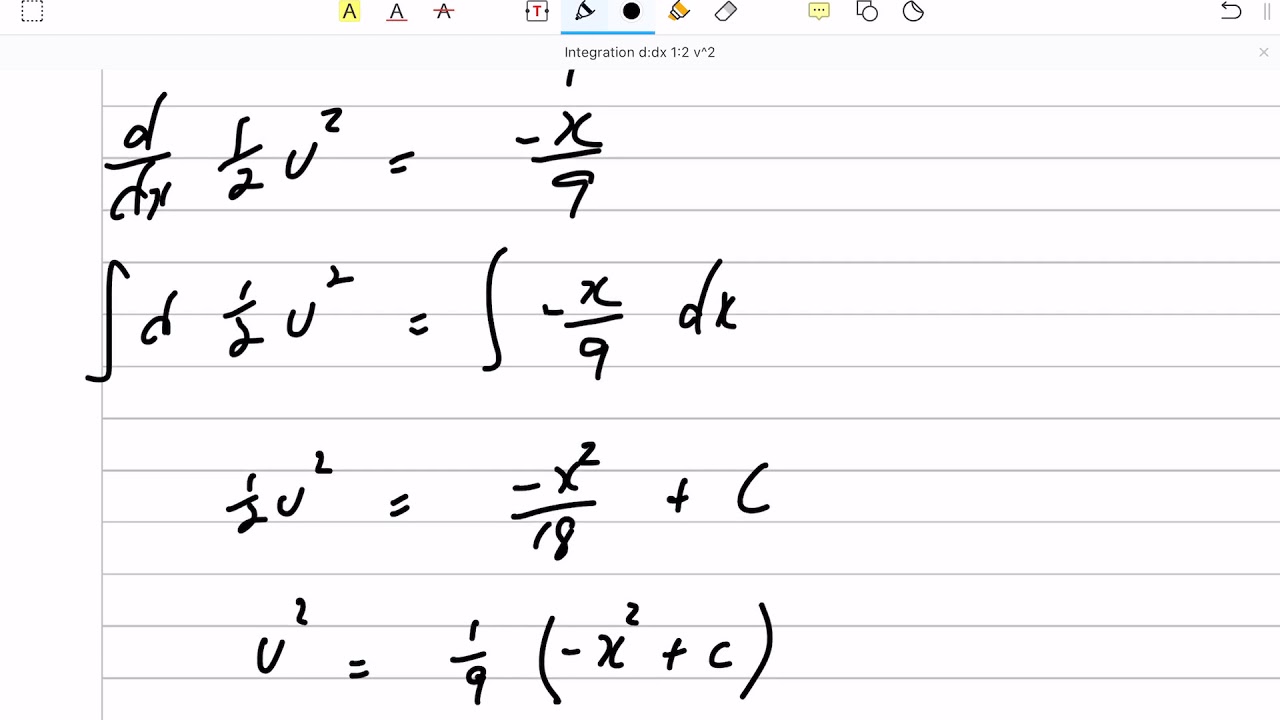 A A A T
Integration d:dx 1:2 v^2
d/dx 1/2 v² = -x/9
∫ d 1/2 v² = ∫ -x/9 dx
1/2 v² = -x²/18 + C
v² = 1/9 (-x² + c)